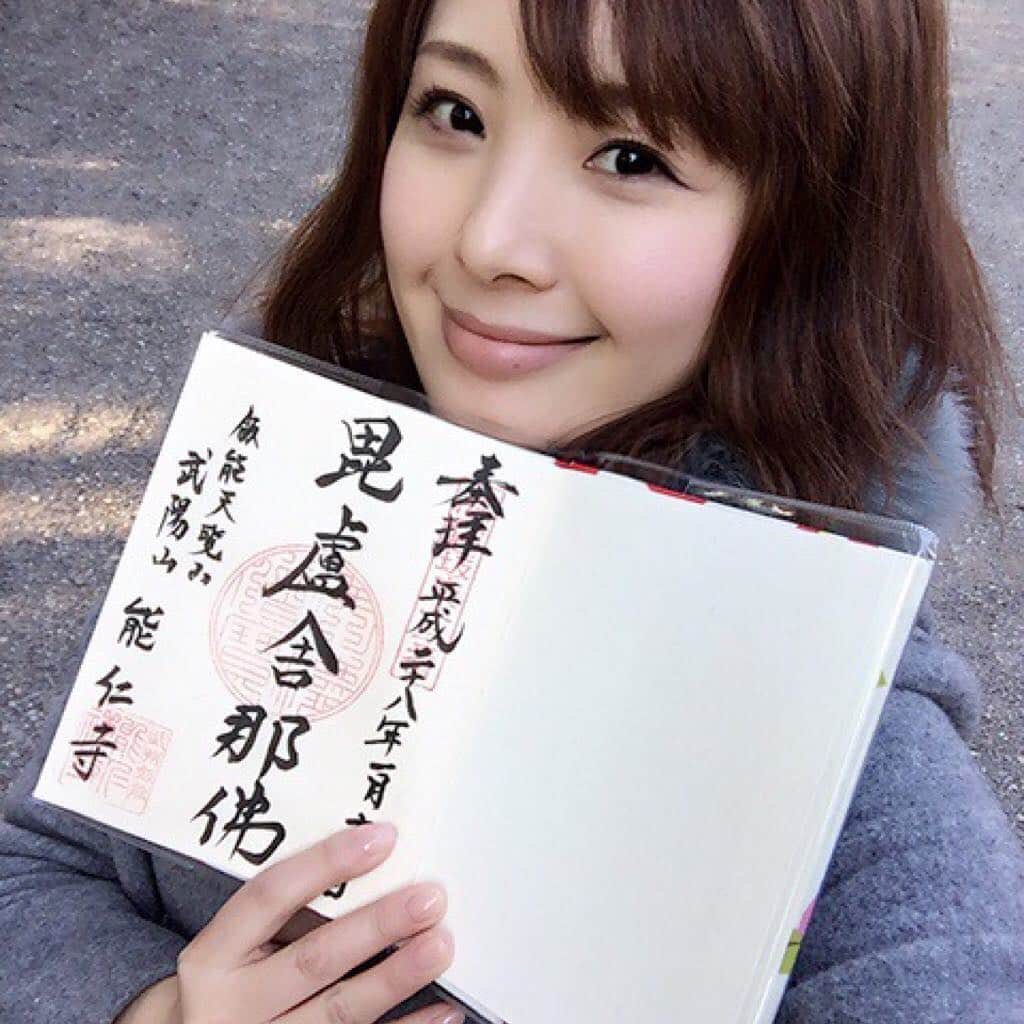 奉拝 平成二十八年一月
毘盧舎那佛
飯能天覧山
武陽山 能仁寺